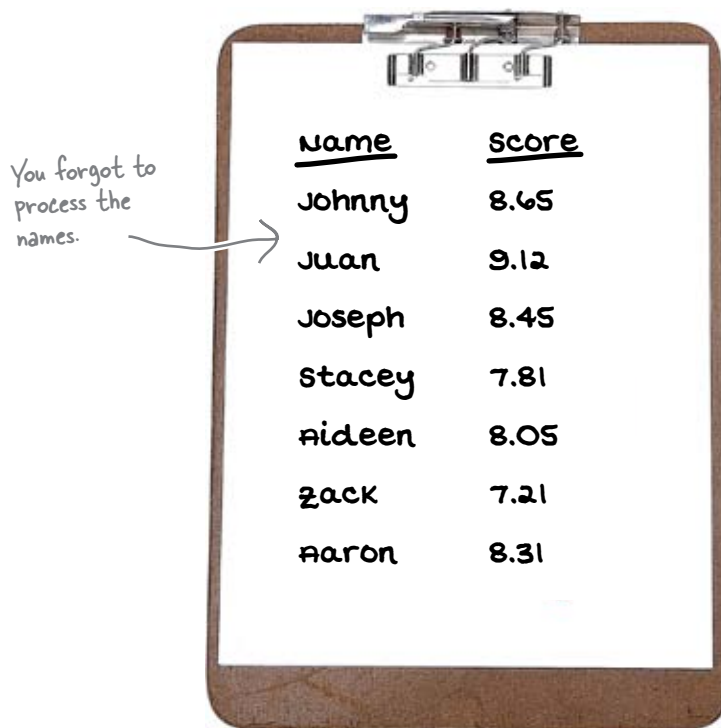 You forgot to
process the
names.
Name Score
Johnny 8.65
Juan 9.12
Joseph 8.45
Stacey 7.81
Aideen 8.05
Zack 7.21
Aaron 8.31